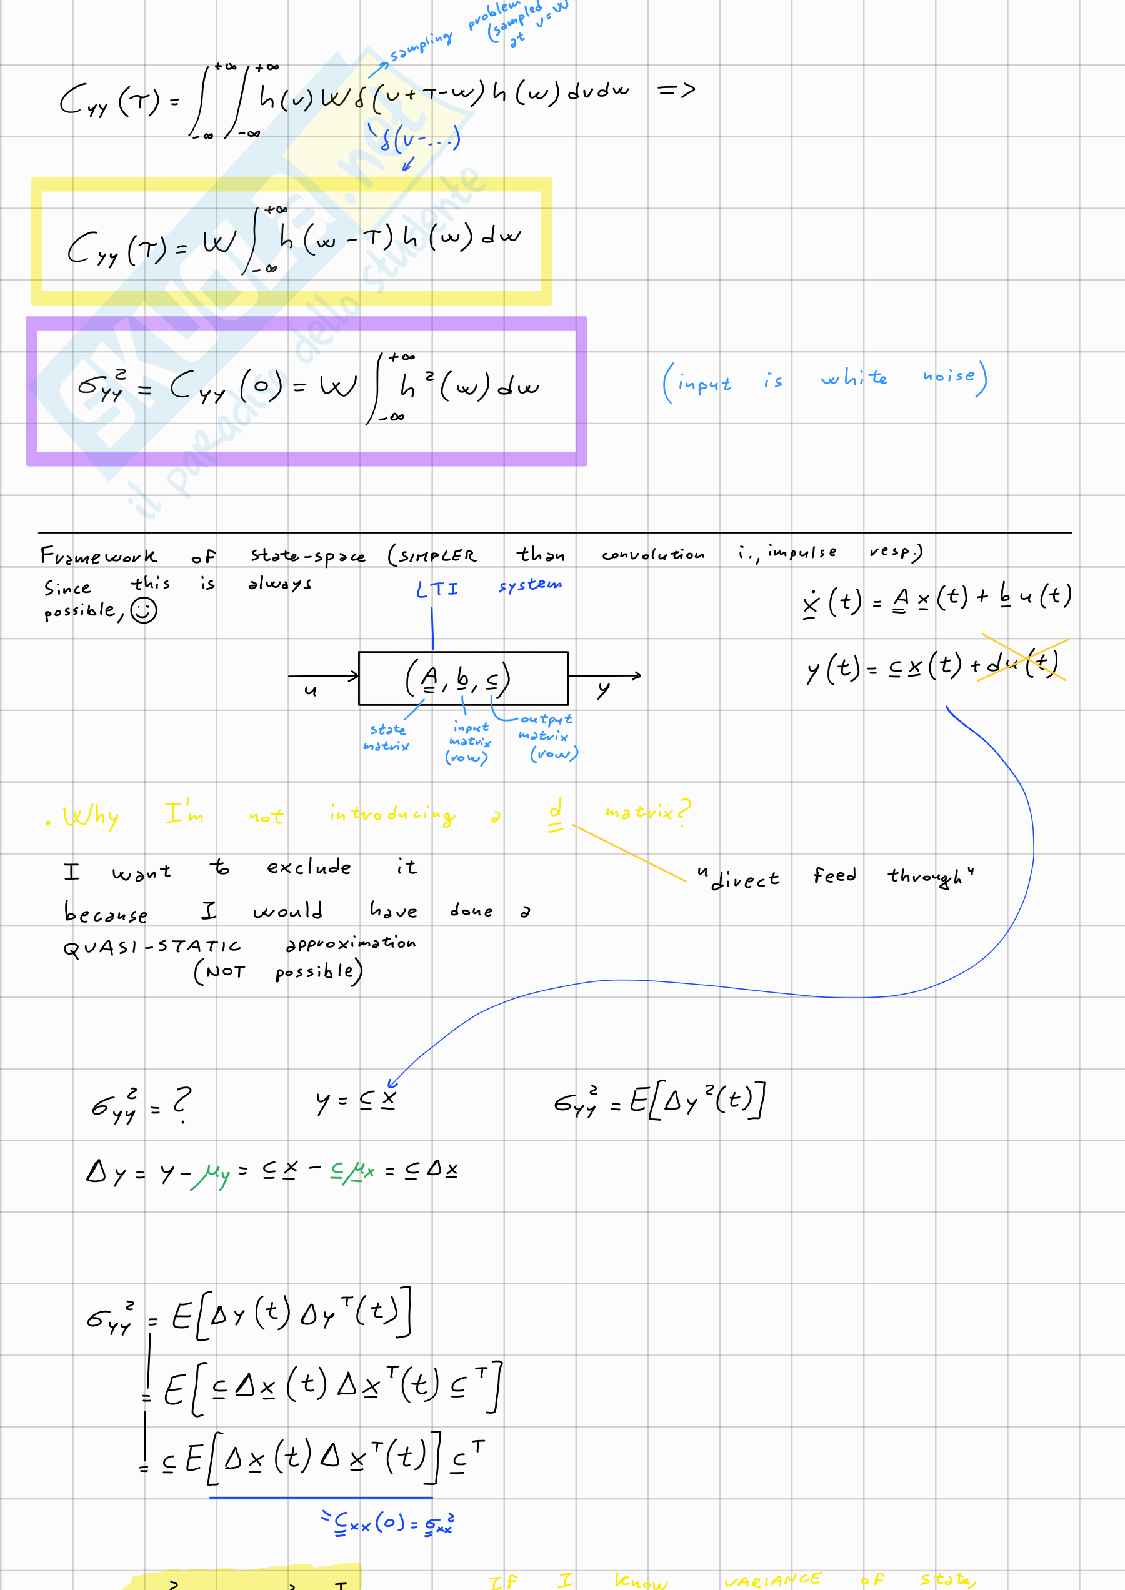 sampling problem
(sampled
at v=w
C_yy(τ) = ∫_{-∞}^{+∞} ∫_{-∞}^{+∞} h(v) W δ(v+τ-w) h(w) dv dw =>
δ(v-...)
C_yy(τ) = W ∫_{-∞}^{+∞} h(w-τ) h(w) dw
σ_yy² = C_yy(0) = W ∫_{-∞}^{+∞} h²(w) dw
(input is white noise)
SKUOLA.net
il paradiso dello studente
Framework of state-space (SIMPLER than convolution i., impulse resp.)
Since this is always
possible, ☺
LTI system
ẋ(t) = A x(t) + b u(t)
y(t) = c x(t) + du(t)
u
(A, b, c)
y
state
matrix
input
matrix
(row)
output
matrix
(row)
. Why I'm not introducing a d matrix?
I want to exclude it
"direct feed through"
because I would have done a
QUASI-STATIC approximation
(NOT possible)
σ_yy² = ?
y = c x
σ_yy² = E[Δy²(t)]
Δy = y - μ_y = c x - c μ_x = c Δx
σ_yy² = E[Δy(t) Δy^T(t)]
= E[c Δx(t) Δx^T(t) c^T]
= c E[Δx(t) Δx^T(t)] c^T
= C_xx(0) = σ_xx²
If I know VARIANCE of state,